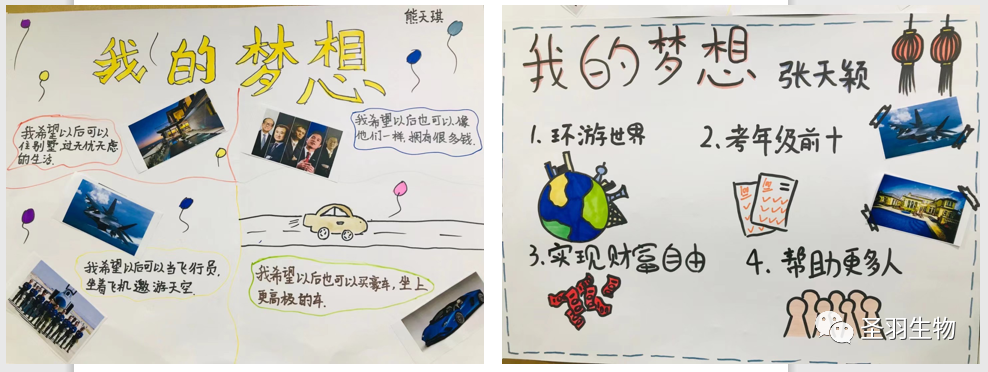 熊天琪
我的梦想
我希望以后可以
住别墅,过无忧无虑
的生活.
我希望以后也可以像
他们一样,拥有很多钱.
我希望以后可以当飞行员,
坐着飞机遨游天空.
我希望以后也可以买豪车,坐上
更高极的车.
我的梦想
张天颖
1.环游世界
2.考年级前十
3.实现财富自由
4.帮助更多人
圣羽生物